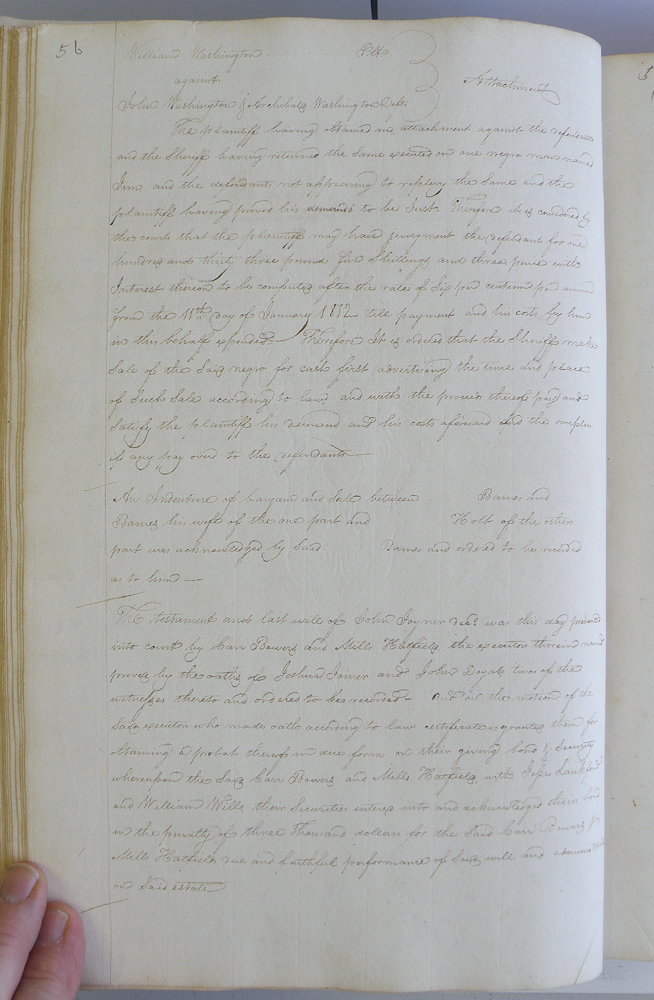 56
William Washington Plto
against
Attachment
John Washington & Archibald Washington Defts
The plaintiff having obtained an attachment against the defendants
and the Sheriff having returned the same executed on one negro man named
Jim and the defendants not appearing to replevy the same and the
plaintiff having proved his demand to be Just Therefore it is considered by
the courts that the plaintiff may have judgment the defendant for one
hundred and thirty three pound five Shillings and three pence with
Interest thereon to be computed after the rate of Six per centum per annum
from the 11th day of January 1812 till payment and his costs by him
in this behalf expended Therefore It is ordered that the Sheriff make
Sale of the Said negro for cash first advertising the time and place
of Such Sale according to law and with the proceeds thereof pay and
Satisfy the plaintiff his demand and his costs aforesaid and the overplus
if any pay over to the defendants
An Indenture of bargain and Sale between Barnes and
Barnes his wife of the one part and Holt of the other
part was acknowledged by Said Barnes and ordered to be recorded
as to him
The testament and last will of John Joyner decd was this day presented
into court by Carr Bowers and Mills Hatfield the executors therein named
proved by the oaths of Joshua Joiner and John two of the
witnesses thereto and ordered to be recorded And on the motion of the
Said executors who made oath according to law certificate is granted them for
obtaining a probat thereof in due form on their giving bond & Security
whereupon the Said Carr Bowers and Mills Hatfield with
and William Wills their Securities entered into and acknowledged their bond
in the penalty of three Thousand dollars for the Said Carr Bowers &
Mills Hatfields due and faithful performance of Said will and
on Said estate